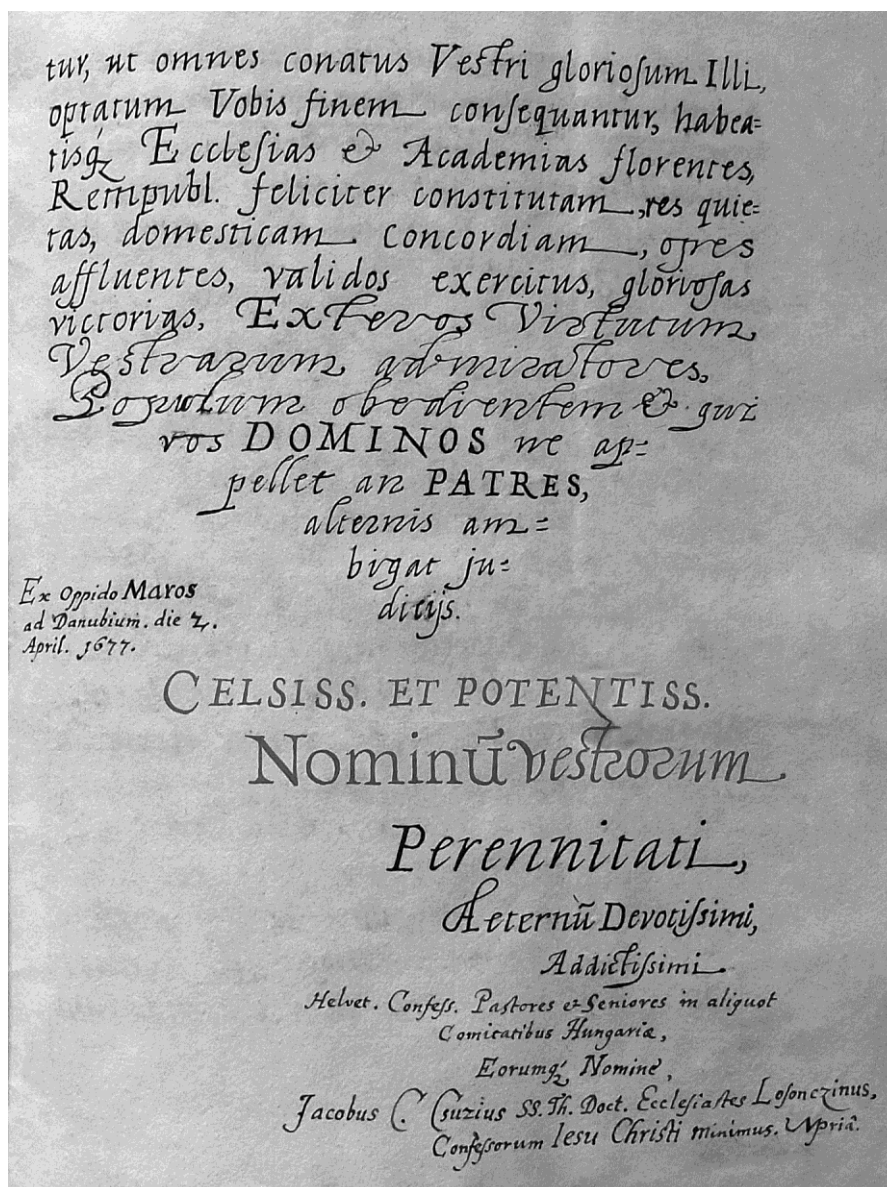 tur, ut omnes conatus Vestri gloriosum Illi,
optatum Vobis finem consequantur, habea=
tisq́ Ecclesias & Academias florentes,
Rempubl. feliciter constitutam, res quie=
tas, domesticam concordiam, opes
affluentes, validos exercitus, gloriosas
victorias, Exteros Virtutum
Vestrarum admiratores,
Populum obedientem & qui
vos DOMINOS ne ap=
pellet an PATRES,
alternis am=
bigat ju=
dicijs.
Ex Oppido Maros
ad Danubium. die 2.
April. 1677.
CELSISS. ET POTENTISS.
Nominū vestrorum
Perennitati,
Aeternū Devotissimi,
Addictissimi.
Helvet. Confess. Pastores & Seniores in aliquot
Comitatibus Hungariæ,
Eorumq́ Nomine,
Jacobus C. Csuzius SS. Th. Doct. Ecclesiastes Losonczinus,
Confessorum Iesu Christi minimus. Mpriâ.